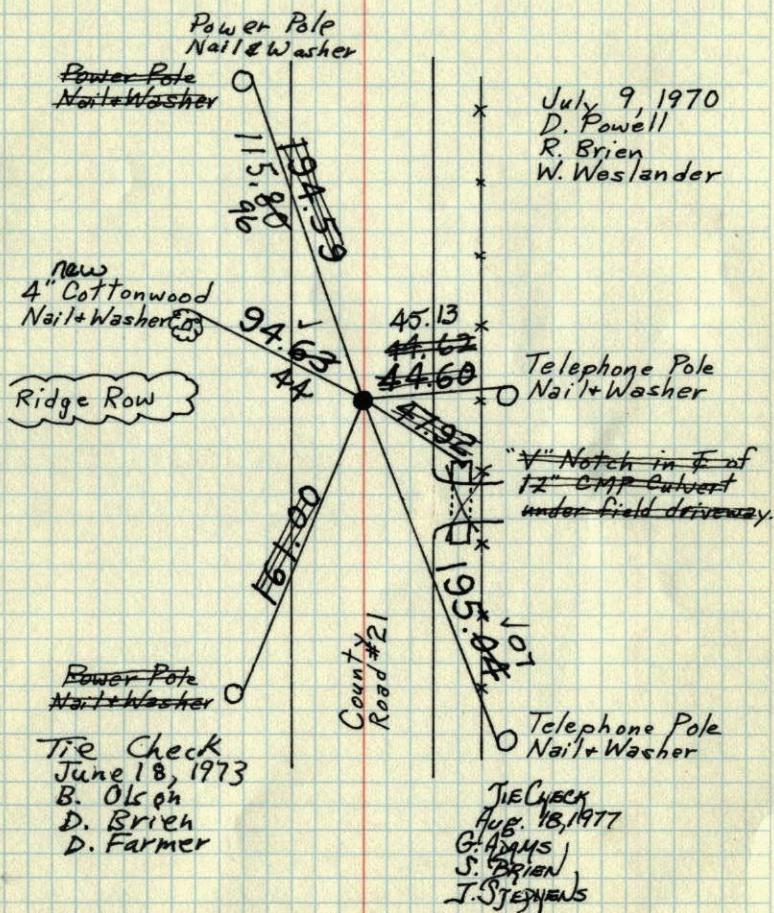 Power Pole
Nail & Washer
Power Pole
Nail & Washer
July 9, 1970
D. Powell
R. Brien
W. Weslander
194.59
115.80
96
new
4" Cottonwood
Nail & Washer
94.63
44
45.13
44.62
44.60
Telephone Pole
Nail & Washer
Ridge Row
47.92
"V" Notch in ℄ of
12" CMP Culvert
under field driveway.
161.00
195.04
07
County
Road #21
Power Pole
Nail & Washer
Telephone Pole
Nail & Washer
Tie Check
June 18, 1973
B. Olson
D. Brien
D. Farmer
TIE CHECK
Aug. 18, 1977
G. ADAMS
S. BRIEN
J. STEPHENS